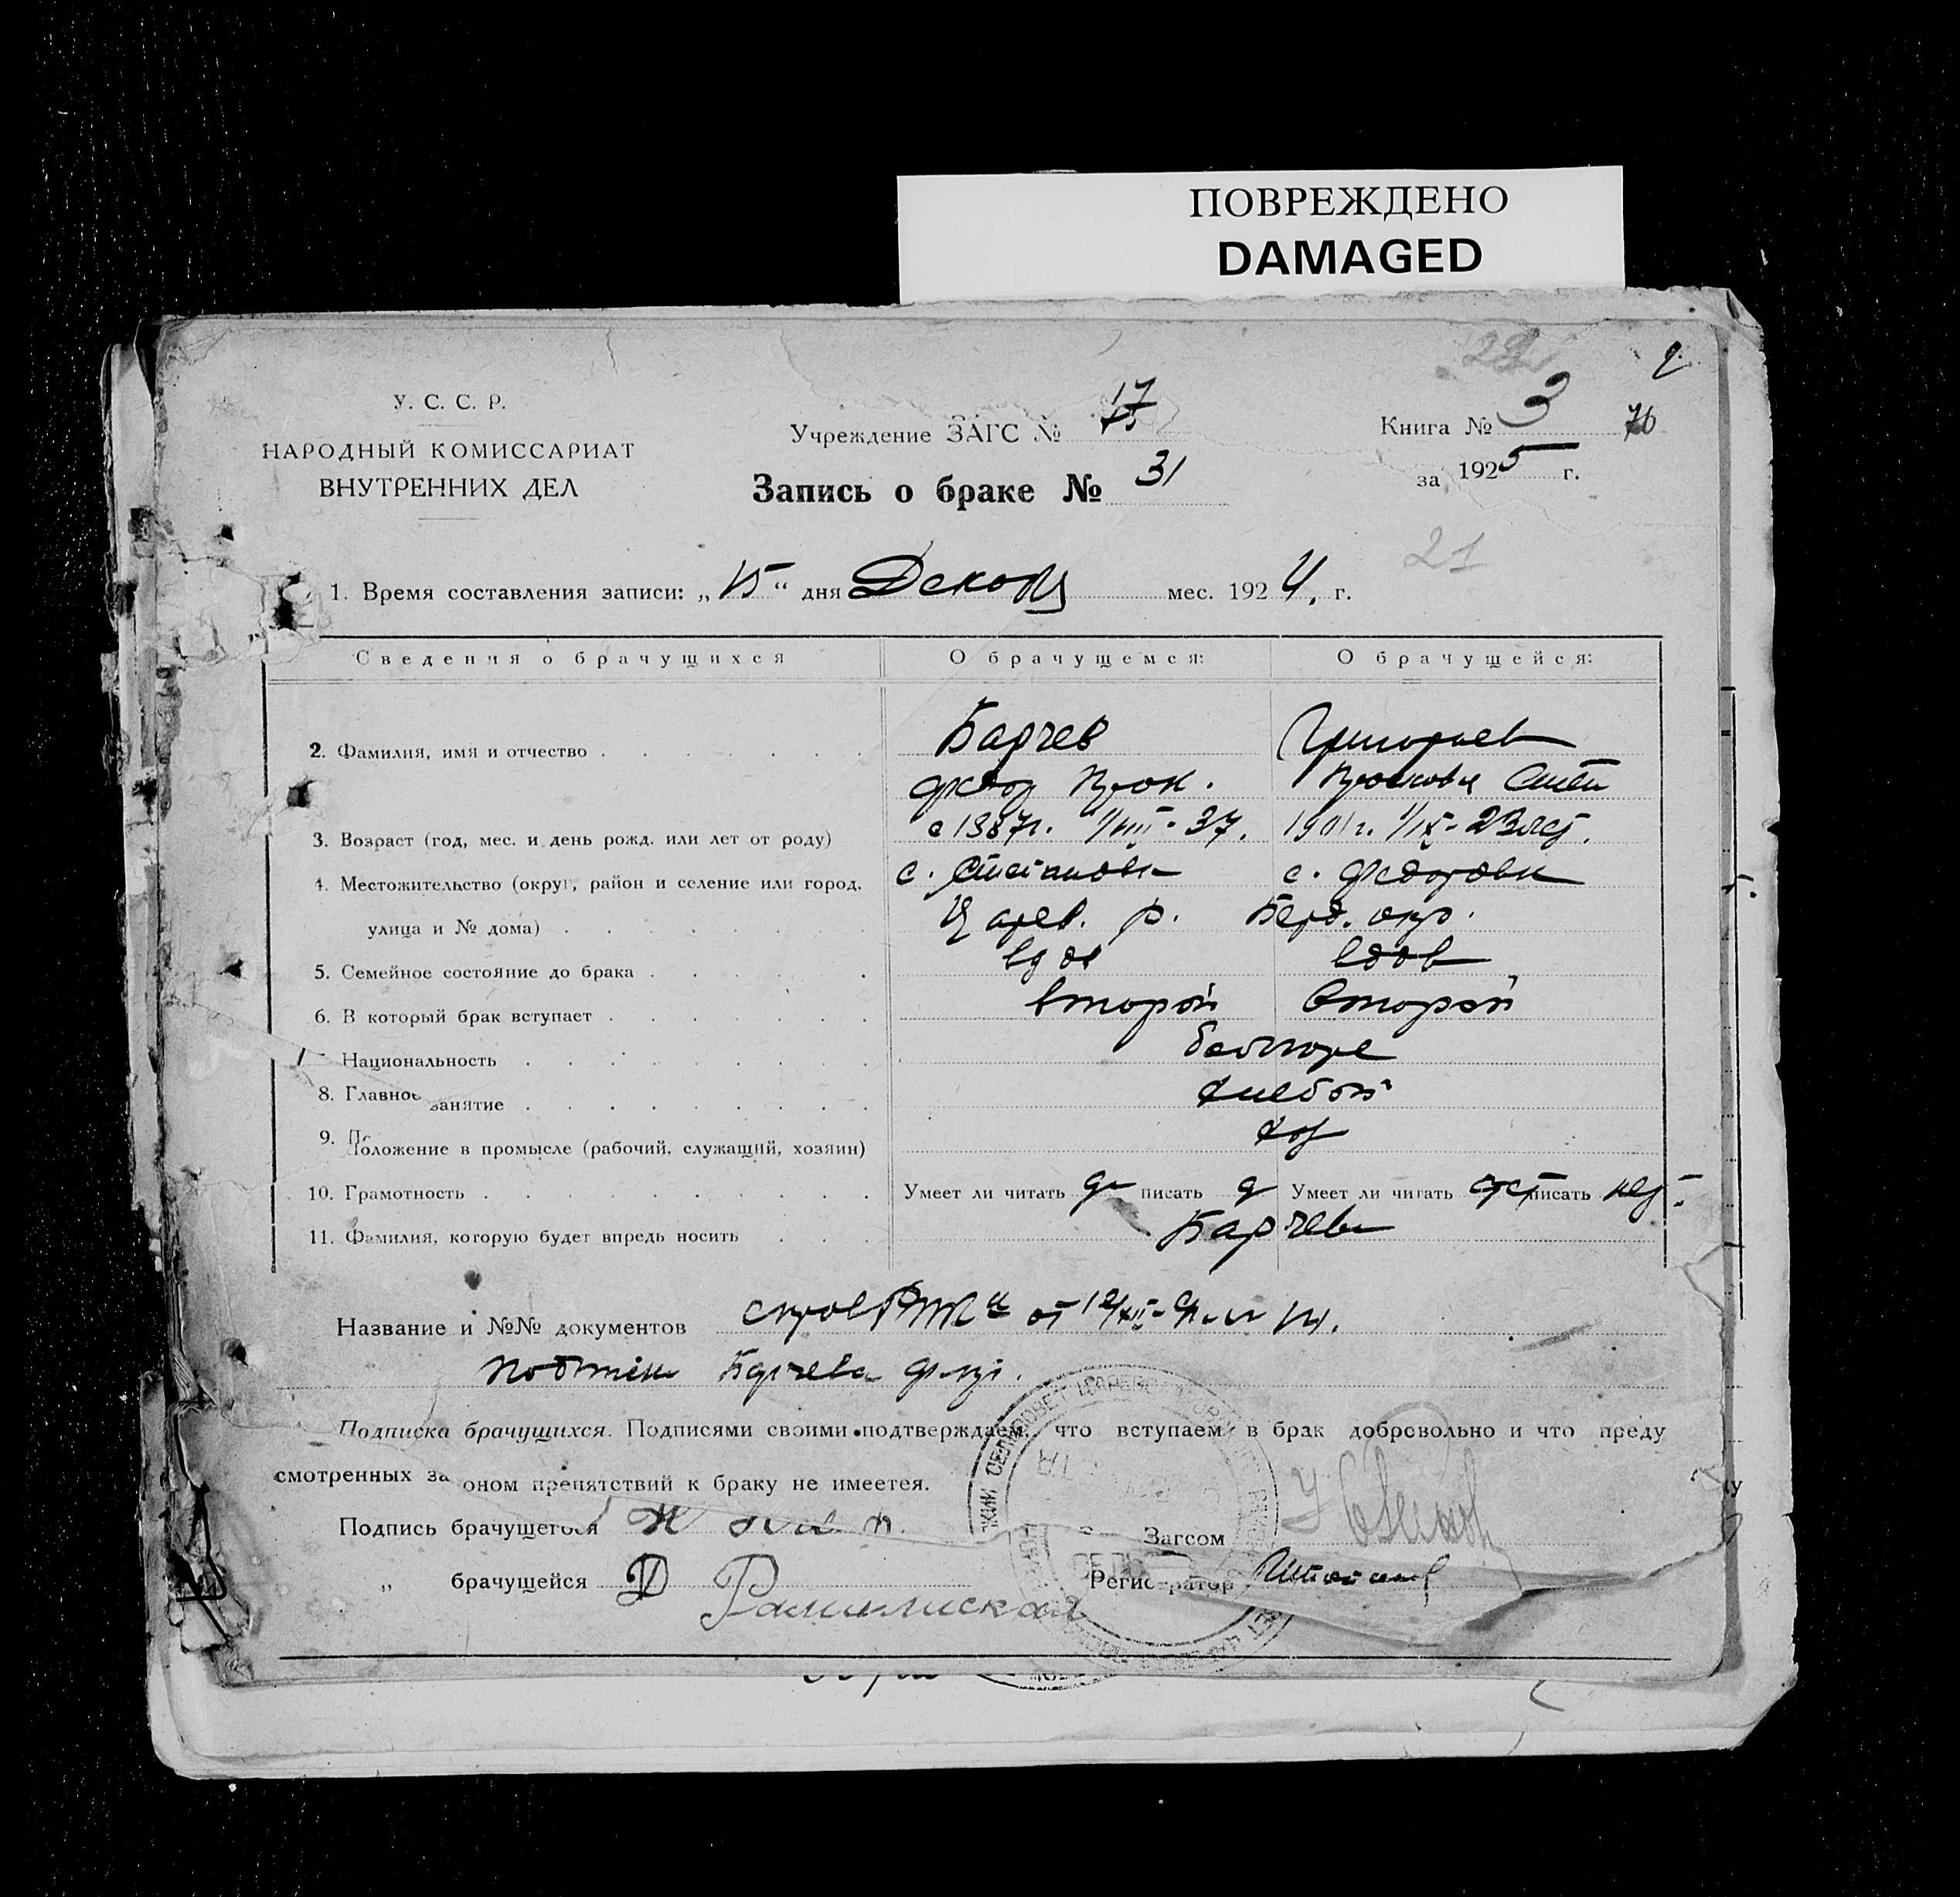 ПОВРЕЖДЕНО
DAMAGED
У. С. С. Р.
НАРОДНЫЙ КОМИССАРИАТ
ВНУТРЕННИХ ДЕЛ
Учреждение ЗАГС № 17
Запись о браке № 31
Книга № 3 76
за 1925 г.
21
1. Время составления записи: „15“ дня Декабр мес. 1924. г.
Сведения о брачущихся О брачущемся: О брачущейся:
2. Фамилия, имя и отчество Барчев Григорьев
Федор Прок. Просковья Степ
3. Возраст (год, мес. и день рожд. или лет от роду) с 1887г. 1/VIII - 37. 1901г. 1/IX - 23 лет.
4. Местожительство (округ, район и селение или город, с. Степановк с. Федоровк
улица и № дома) Царев. р. Берд. окр.
5. Семейное состояние до брака вдов вдов
6. В который брак вступает второй второй
Национальность болгаре
8. Главное занятие хлебоп
9. Положение в промысле (рабочий, служащий, хозяин) хоз
10. Грамотность Умеет ли читать да писать д Умеет ли читать писать нет.
11. Фамилия, которую будет впредь носить Барчевы
Название и №№ документов от
Барчева
Подписка брачущихся. Подписями своими подтверждаем, что вступаем в брак добровольно и что преду
смотренных законом препятствий к браку не имеется.
Подпись брачущегося Загсом
„ брачущейся Регистратор